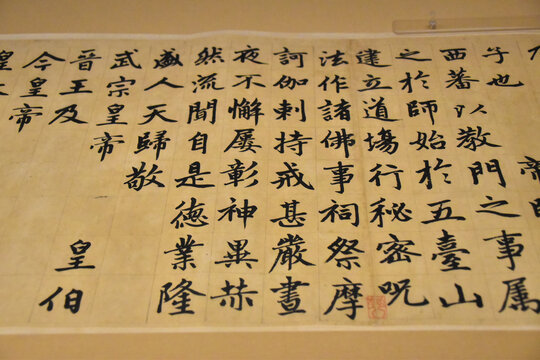 子也　帝
西蕃以教門之事属
之於師始於五臺山
建立道場行秘密咒
法作諸佛事祠祭摩
訶伽剌持戒甚嚴晝
夜不懈屢彰神異赫
然流聞自是德業隆
盛人天歸敬
武宗皇帝　皇伯
晉王及
今皇帝
皇